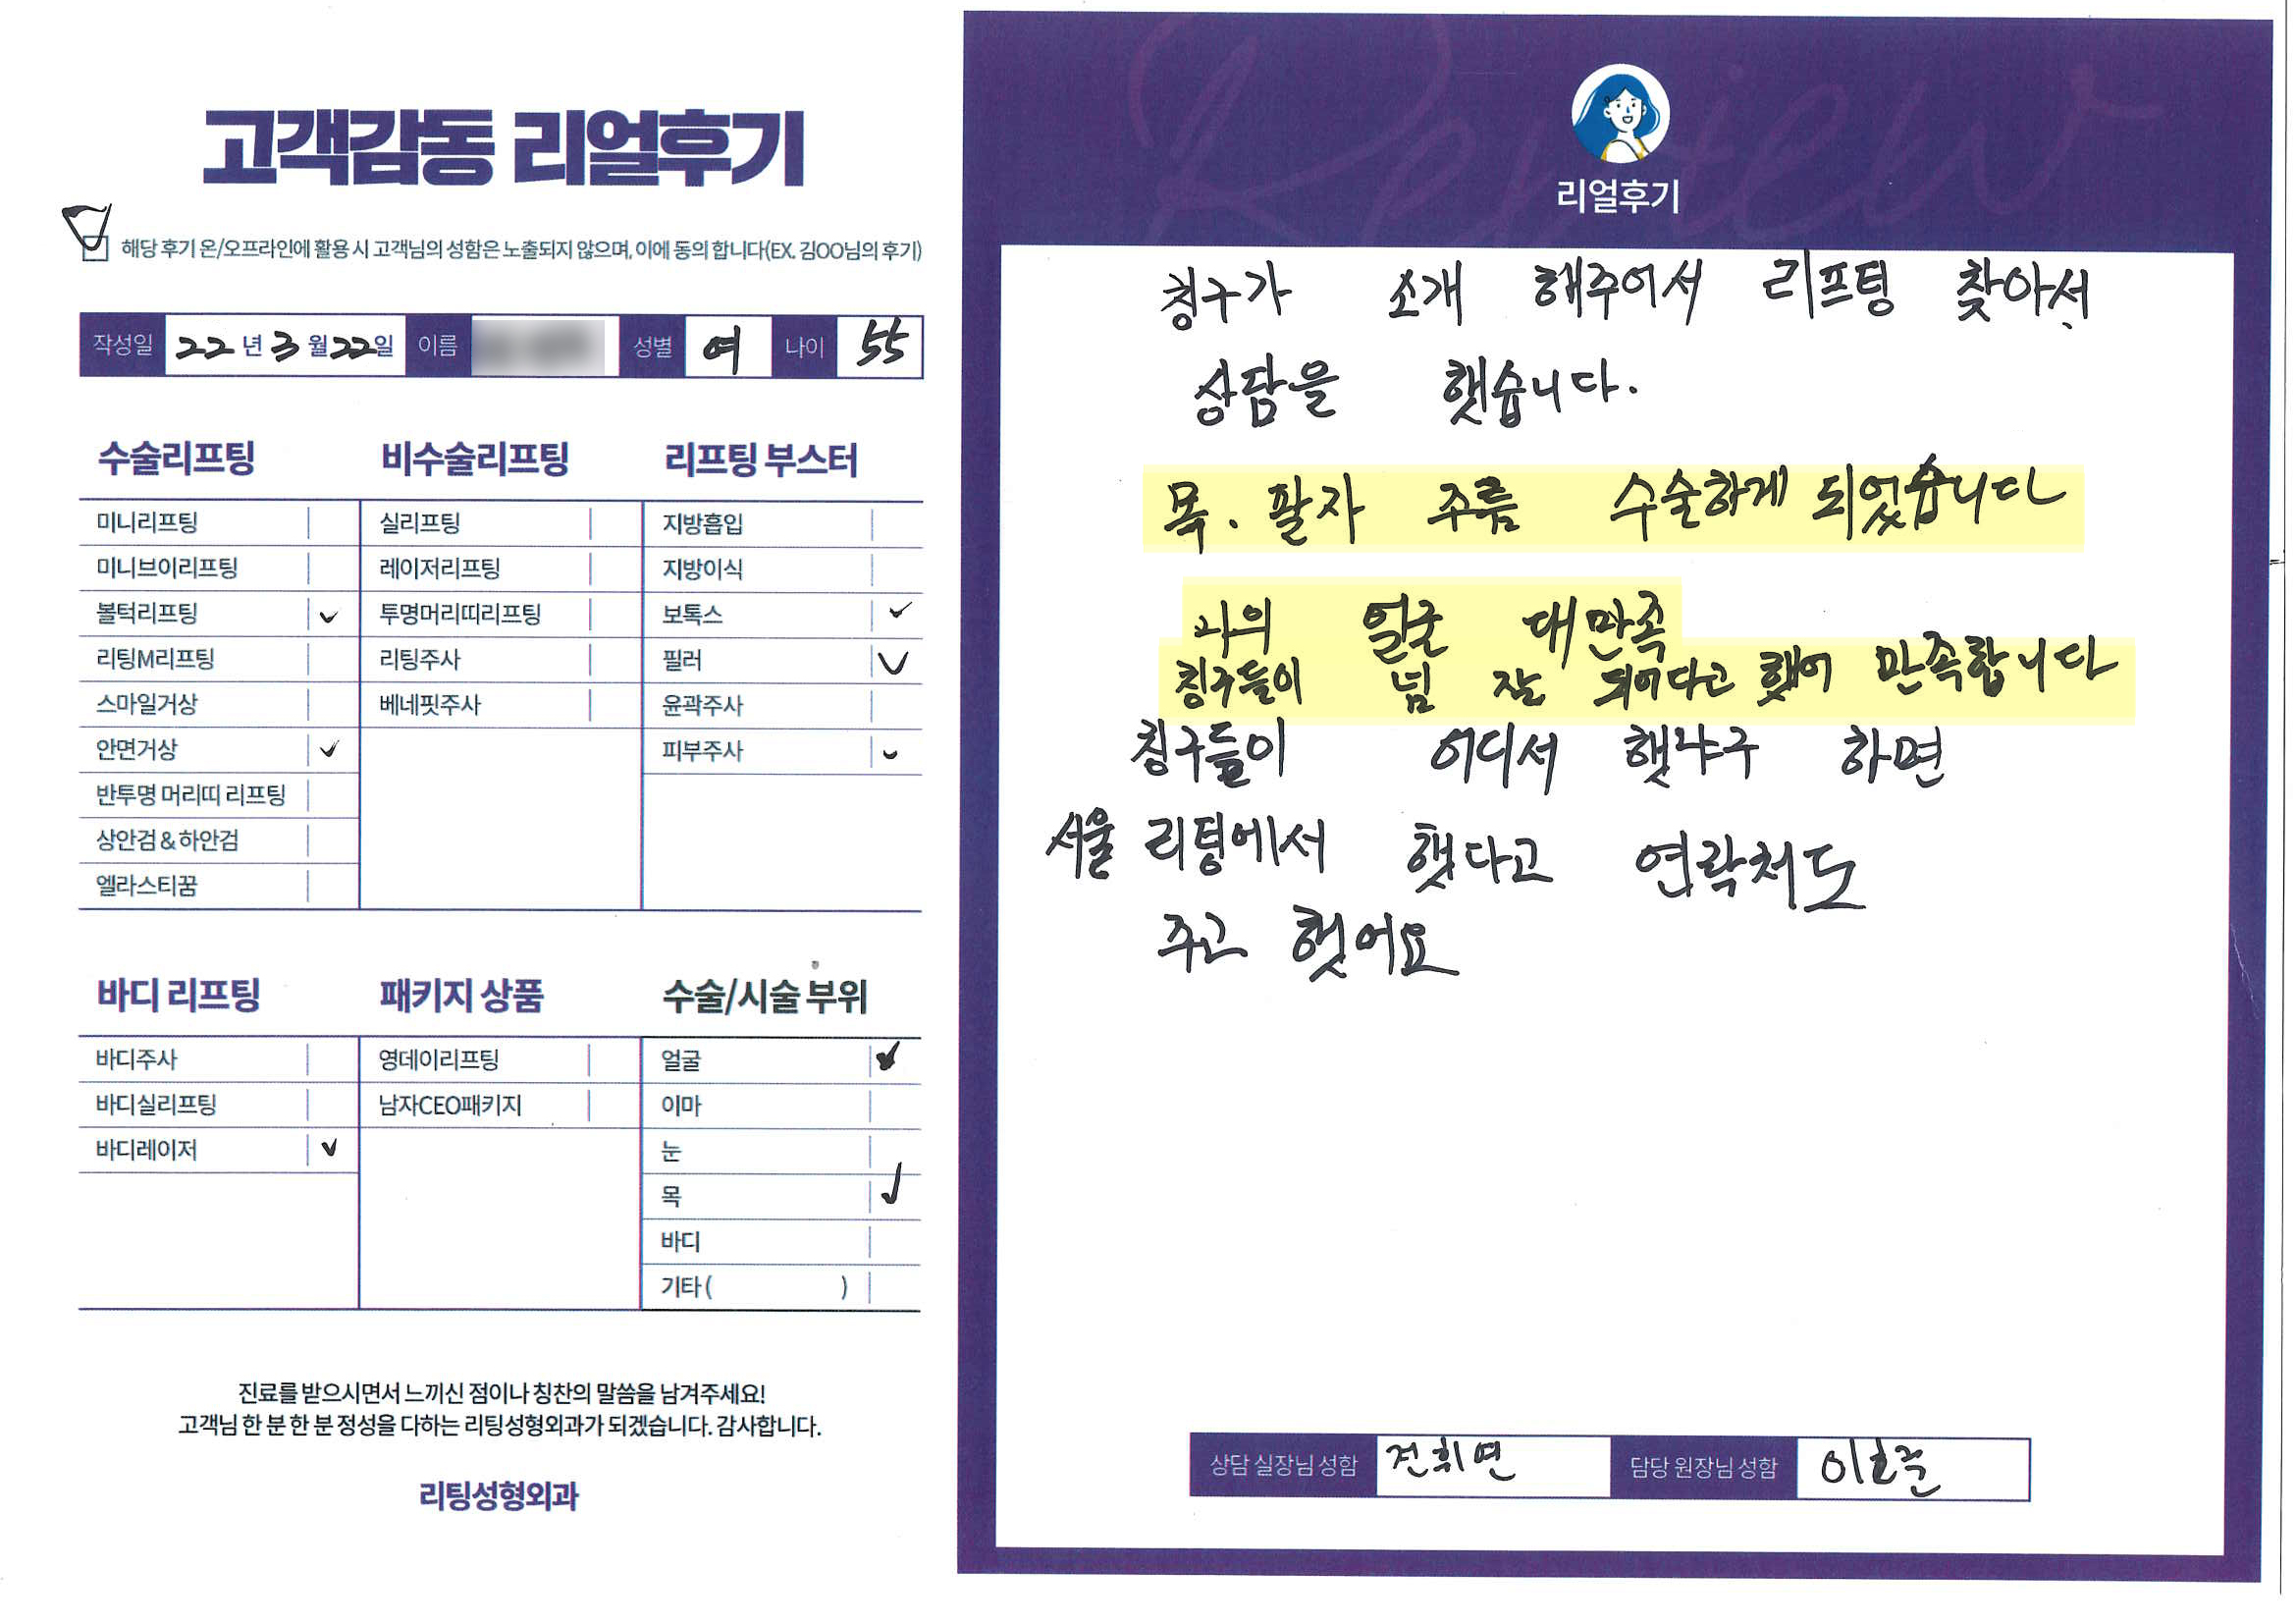 고객감동 리얼후기
해당 후기 온/오프라인에 활용 시 고객님의 성함은 노출되지 않으며, 이에 동의 합니다(EX. 김OO님의 후기)
작성일 22년 3월 22일 이름 성별 여 나이 55
수술리프팅
미니리프팅
미니브이리프팅
볼턱리프팅
리팅M리프팅
스마일거상
안면거상
반투명 머리띠 리프팅
상안검 & 하안검
엘라스티꿈
비수술리프팅
실리프팅
레이저리프팅
투명머리띠리프팅
리팅주사
베네핏주사
리프팅 부스터
지방흡입
지방이식
보톡스
필러
윤곽주사
피부주사
바디 리프팅
바디주사
바디실리프팅
바디레이저
패키지 상품
영데이리프팅
남자CEO패키지
수술/시술 부위
얼굴
이마
눈
목
바디
기타 ( )
진료를 받으시면서 느끼신 점이나 칭찬의 말씀을 남겨주세요!
고객님 한 분 한 분 정성을 다하는 리팅성형외과가 되겠습니다. 감사합니다.
리팅성형외과
Review
리얼후기
칭구가 소개 해주어서 리프팅 찾아서
상담을 햇습니다.
목. 팔자 주름 수술하게 되었습니다
나의 얼굴 대만족
칭구들이 넘 잘 되어다고 했어 만족합니다
칭구들이 어디서 햇냐구 하면
서울 리팅에서 햇다고 연락처도
주고 햇어요
상담 실장님 성함 전휘연 담당 원장님 성함 이호준